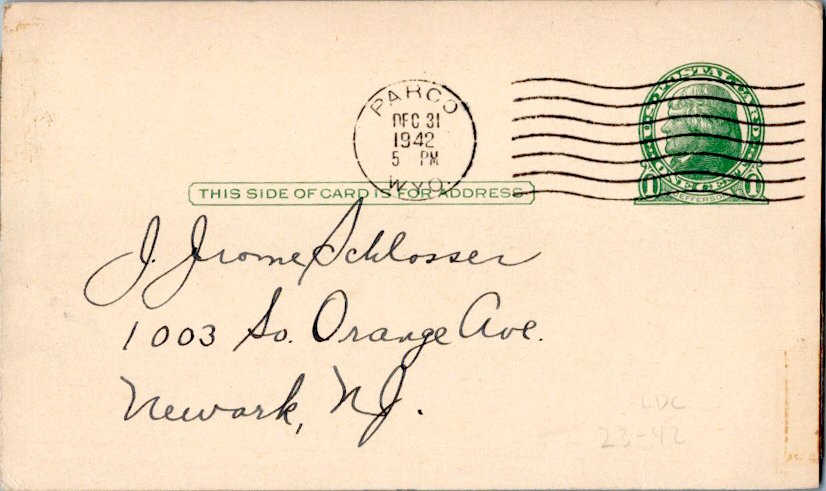 PARCO
DEC 31
1942
5 PM
WYO.
U.S. POSTAL CARD
ONE CENT
1 1
JEFFERSON
THIS SIDE OF CARD IS FOR ADDRESS
J. Jrome Schlosser
1003 So. Orange Ave.
Newark, NJ.
LDC
23-42